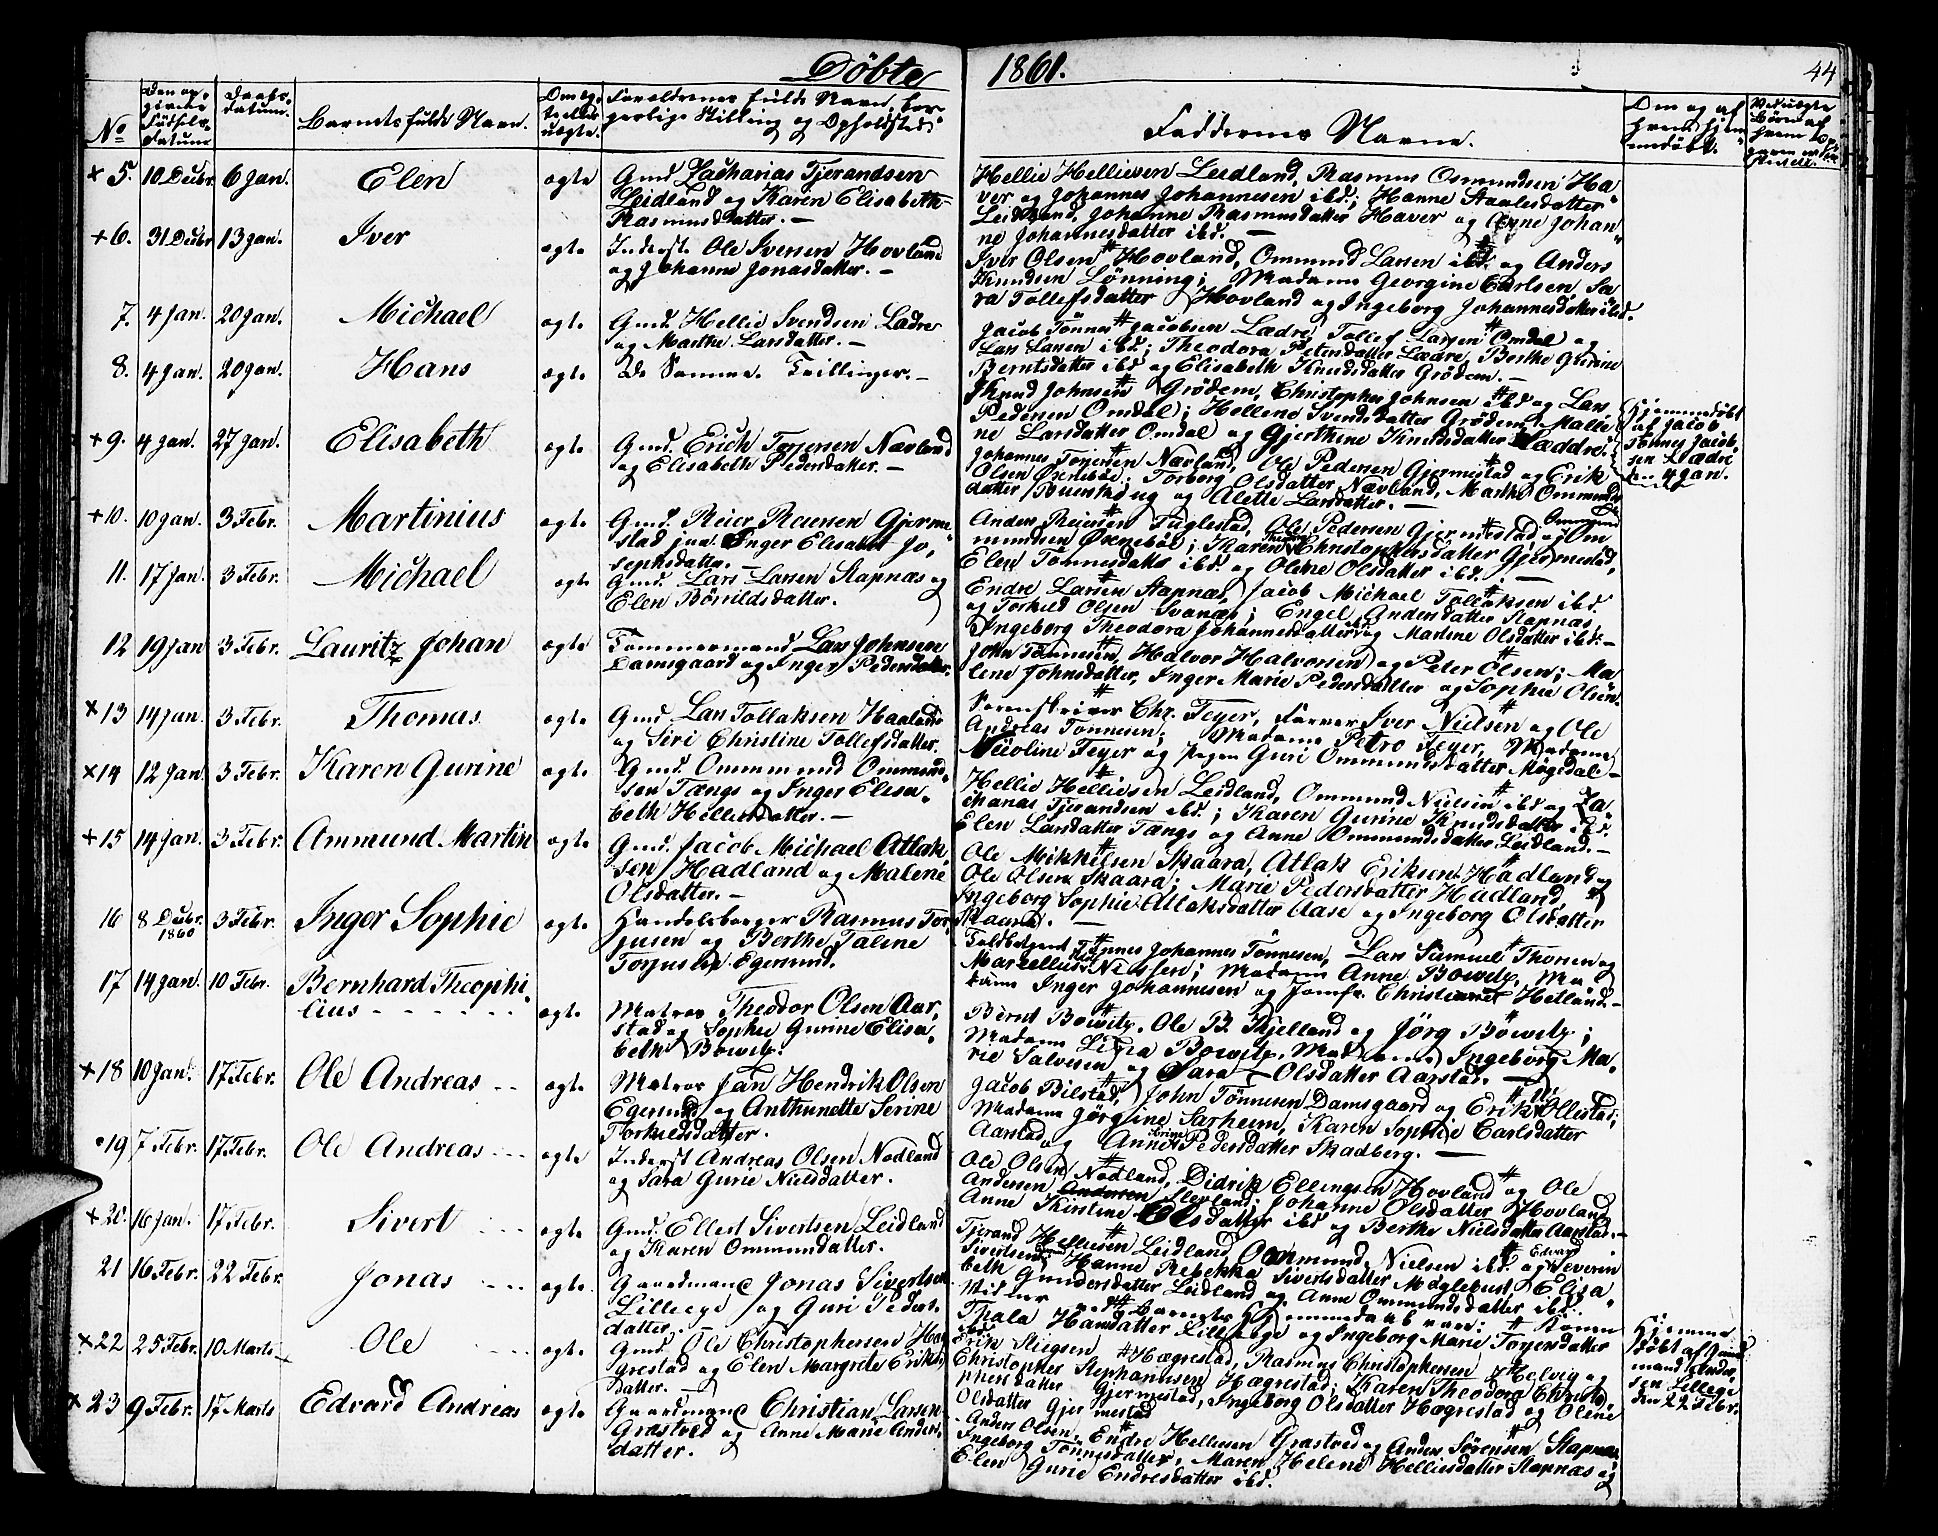 Döbte 1861. 44
No
Den op-
givne
Födsels-
datum
Daabs-
datum.
Barnets fulde Navn.
Om æg-
te eller
uægte.
Forældrenes fulde Navn, bor-
gerlige Stilling og Opholdsted
Faddernes Navne.
Om og af
hvem hjem-
mdöbt.
+ 5. 10 Decbr. 6 Jan. Elen ægte Gmd. Zacharias Tjerandsen
Leidland og Karen Elisabeth
Rasmusdatter. —
Hellie Helliesen Leidland, Rasmus Osmundsen Ha-
ver og Johannes Johannesen ibd; Hanne Staalesdatter
Leidland, Johanne Rasmusdatter Haver og Anne Johan-
ne Johannesdatter ibd. —
+ 6. 31 Decbr 13 Jan. Iver ægte Inderst Ole Iversen Hovland
og Johanne Jonasdatter. —
Iver Olsen Hovland, Ommund Larsen ibd. og Anders
Knudsen Lönning; Madame Georgine Carlsen, Sa-
ra Tollefsdatter Hovland og Ingeborg Johannesdatter ibd.
7. 4 Jan. 20 Jan. Michael ægte Gmd. Hellie Svendsen Lædre
og Marthe Larsdatter. —
Jacob Tönnes Jacobsen Lædre, Tollef Larsen Omdal og
Lars Larsen ibd; Theodora Petersdatter Lædre, Berthe Gurine
Berntsdatter ibd og Elisabeth Knudsdatter Grödem. —
8. 4 Jan. 20 Jan. Hans ægte De Samme. Tvillinger. —
Knud Johnsen Grödem, Christopher Johnsen ibd og Lars
Pedersen Omdal; Hellene Svendsdatter Grödem, Malle-
ne Larsdatter Omdal og Gjerthine Knudsdatter Læddre.
Hjemmedöbt
af Jacob
Tönnes Jacob-
sen Lædre
den 4 Jan.
+ 9. 4 Jan. 27 Jan. Elisabeth ægte Gmd. Erich Torjersen Nævland
og Elisabeth Pedersdatter. —
Johannes Torjersen Nævland, Ole Pedersen Gjermestad og Erik
Olsen Öxneböe; Torborg Olsdatter Nævland, Marthe Ommunds-
datter Buerskoug og Alette Larsdatter. —
+ 10. 10 Jan. 3 Febr. Martinius ægte Gmd. Reier Reiersen Gjerme-
stad jun. Inger Elisabet Jo-
sephsdatter. —
Anders Reiersen Fuglestad, Ole Pedersen Gjermestad og Om-
mundsen Öxneböe; Karen Christophersdatter Gjermestad,
Elen Tönnesdatter ibd. og Oline Olsdatter ibd. —
11. 17 Jan. 3 Febr. Michael ægte Gmd. Lars Larsen Stapnæs og
Elen Börrildsdatter.
Endre Larsen Stapnæs, Jacob Michael Tollaksen ibd.
og Torkild Olsen Svanæs; Engel Andersdatter Stapnæs,
Ingeborg Theodora Johannesdatter og Martine Olsdatter ibd. —
12 19 Jan 3 Febr. Lauritz Johan ægte Tømmermand Lars Johnsen
Damsgaard og Inger Pedersdatter.
John Tönnesen, Halvor Halvorsen og Peter Olsen; Ma-
lene Johnsdatter, Inger Marie Pedersdatter og Sophie Olsen.
× 13 14 Jan. 3 Febr. Thomas ægte Gmd. Lars Tollaksen Haaland
og Siri Christine Tollefsdatter.
Sorenskriver Chr. Feyer, Farver Iver Nielsen og Ole
Andreas Tönnesen; Madame Petro Feyer, Madame
Nicoline Feyer og Pigen Guri Ommundsdatter Mögedal. —
× 14 12 Jan. 3 Febr. Karen Gurine ægte Gmd. Ommund Ommund-
sen Tængs og Inger Elisa-
beth Helliesdatter. —
Hellie Helliesen Leidland, Ommund Nielsen ibd og Za-
charias Tjerandsen ibd; Karen Gurine Knudsdatter ibd.
Elen Larsdatter Tængs og Anne Ommundsdatter Leidland. —
+ 15 14 Jan. 3 Febr. Ammund Martin ægte Gmd. Jacob Michael Atlak-
sen Hadland og Malene
Olsdatter. —
Ole Mikkelsen Skaara, Atlak Eriksen Hadland og
Ole Olsen Skaara; Marie Pedersdatter Hadland,
Ingeborg Sophie Atlaksdatter Aase og Ingeborg Olsdatter
Skaara. —
16 8 Decbr. 1860 3 Febr. Inger Sophie ægte Handelsborger Rasmus Tor-
jusen og Berthe Taline
Torjusen Egersund.
Foldbetjent Tönnes Johannes Tönnesen, Lars Samuel Thorsen og
Marcellius Nissen; Madame Anne Bowitz, Ma-
dame Inger Johannesen og Jomfr. Christianne Hetland. —
17 14 Jan. 10 Febr. Bernhard Theophi-
lius ægte Matros Theodor Olsen Aar-
stad og Sophie Gurine Elisa-
beth Bowitz.
Bernt Bowitz, Ole B. Kjelland og Jörg Böwitz;
Madame Bowitz, Madame Ingeborg Ma-
rie Salvesen og Sara Olsdatter Aarstad. —
+ 18 10 Jan. 17 Febr. Ole Andreas ægte Matros Jan Hendrik Olsen
Egersund og Anthunette Serine
Torkildsdatter.
Jacob Bilstad, John Tönnesen Damsgaard og Erik Ollestad;
Madame Jörgine Sarheim, Karen Sophie Carlsdatter
Aarstad og Anne Serine Pedersdatter Skadberg. —
19 7 Febr. 17 Febr. Ole Andreas ægte Inderst Andreas Olsen Nodland
og Sara Gurie Nielsdatter.
Ole Olsen Nodland, Didrik Ellingsen Hovland og Ole
Andersen Slevland; Johanne Olsdatter Hovland
Anne Kirstine Olsdatter ibd og Berthe Nielsdatter Aarstad. —
+ 20. 16 Jan. 17 Febr. Sivert ægte Gmd. Ellert Sivertsen Leidland
og Karen Ommundsdatter.
Tjerand Helliesen Leidland, Ommund Nielsen ibd. og Severin Edvard
Sivertsen; Hanne Rebekka Sivertsdatter Möglebust, Elisa-
beth Gundersdatter Leidland og Anne Ommundsdatter ibd.
21 16 Febr. 22 Febr. Jonas ægte Gaardmand Jonas Sivertsen
Lilleege og Guri Peders-
datter.
Vidner ved Barnets Hjemmedaab vare: Konen
Thala Hansdatter Lilleege og Ingeborg Marie Torgersdatter
Hjemme-
döbt af Gaard-
mand
sen Lilleege
den 22 Febr.
× 22 25 Febr. 10 Marts Ole ægte Gmd. Ole Christophersen Hæ-
grestad og Elen Margrete Eriks-
datter.
Erik Stiegsen Hægrestad, Rasmus Christophersen Helvig og
Christopher Stephanusen Hægrestad; Karen Theodora Christo-
phersdatter Gjermestad, Ingeborg Olsdatter Hægrestad og Oline
Olsdatter Gjermestad
× 23 9 Febr. 17 Marts Edvard Andreas ægte Gaardmand Christian Larsen
Græstved og Anne Marie Anders-
datter.
Anders Olsen, Endre Helliesen Græstved og Anders Sörensen Stapnæs;
Ingeborg Tönnesdatter, Maren Helene Helliesdatter Stapnæs og
Elen Gurie Endresdatter ibd.